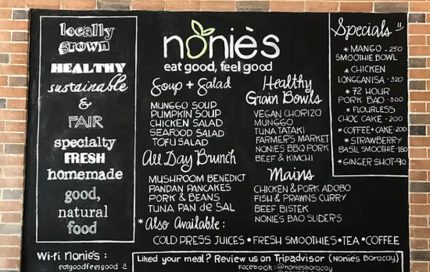 locally
grown
HEALTHY
sustainable
&
FAIR
specialty
FRESH
homemade
good,
natural
food
noniè's
eat good, feel good
Soup + Salad
MUNGGO SOUP
PUMPKIN SOUP
CHICKEN SALAD
SEAFOOD SALAD
TOFU SALAD
All Day Brunch
MUSHROOM BENEDICT
PANDAN PANCAKES
PORK & BEANS
TUNA PAN de SAL
Healthy
Grain Bowls
VEGAN CHORIZO
MUNGGO
TUNA TATAKI
FARMER'S MARKET
NONIE'S BBQ PORK
BEEF & KIMCHI
Mains
CHICKEN & PORK ADOBO
FISH & PRAWNS CURRY
BEEF BISTEK
NONIES BAO SLIDERS
* Also Available :
COLD PRESS JUICES • FRESH SMOOTHIES • TEA • COFFEE
Specials !!
* MANGO - 250
SMOOTHIE BOWL
* CHICKEN
LONGGANISA - 320
* 72 HOUR
PORK BAO - 300
* FLOURLESS
CHOC CAKE - 200
* COFFEE + CAKE - 200
* STRAWBERRY
BASIL SMOOTHIE - 180
* GINGER SHOT - 90
Wi-fi Nonie's :
eatgoodfeelgood :)
Liked your meal? Review us on Tripadvisor (Nonie's Boracay)
Facebook : @noniesboracay